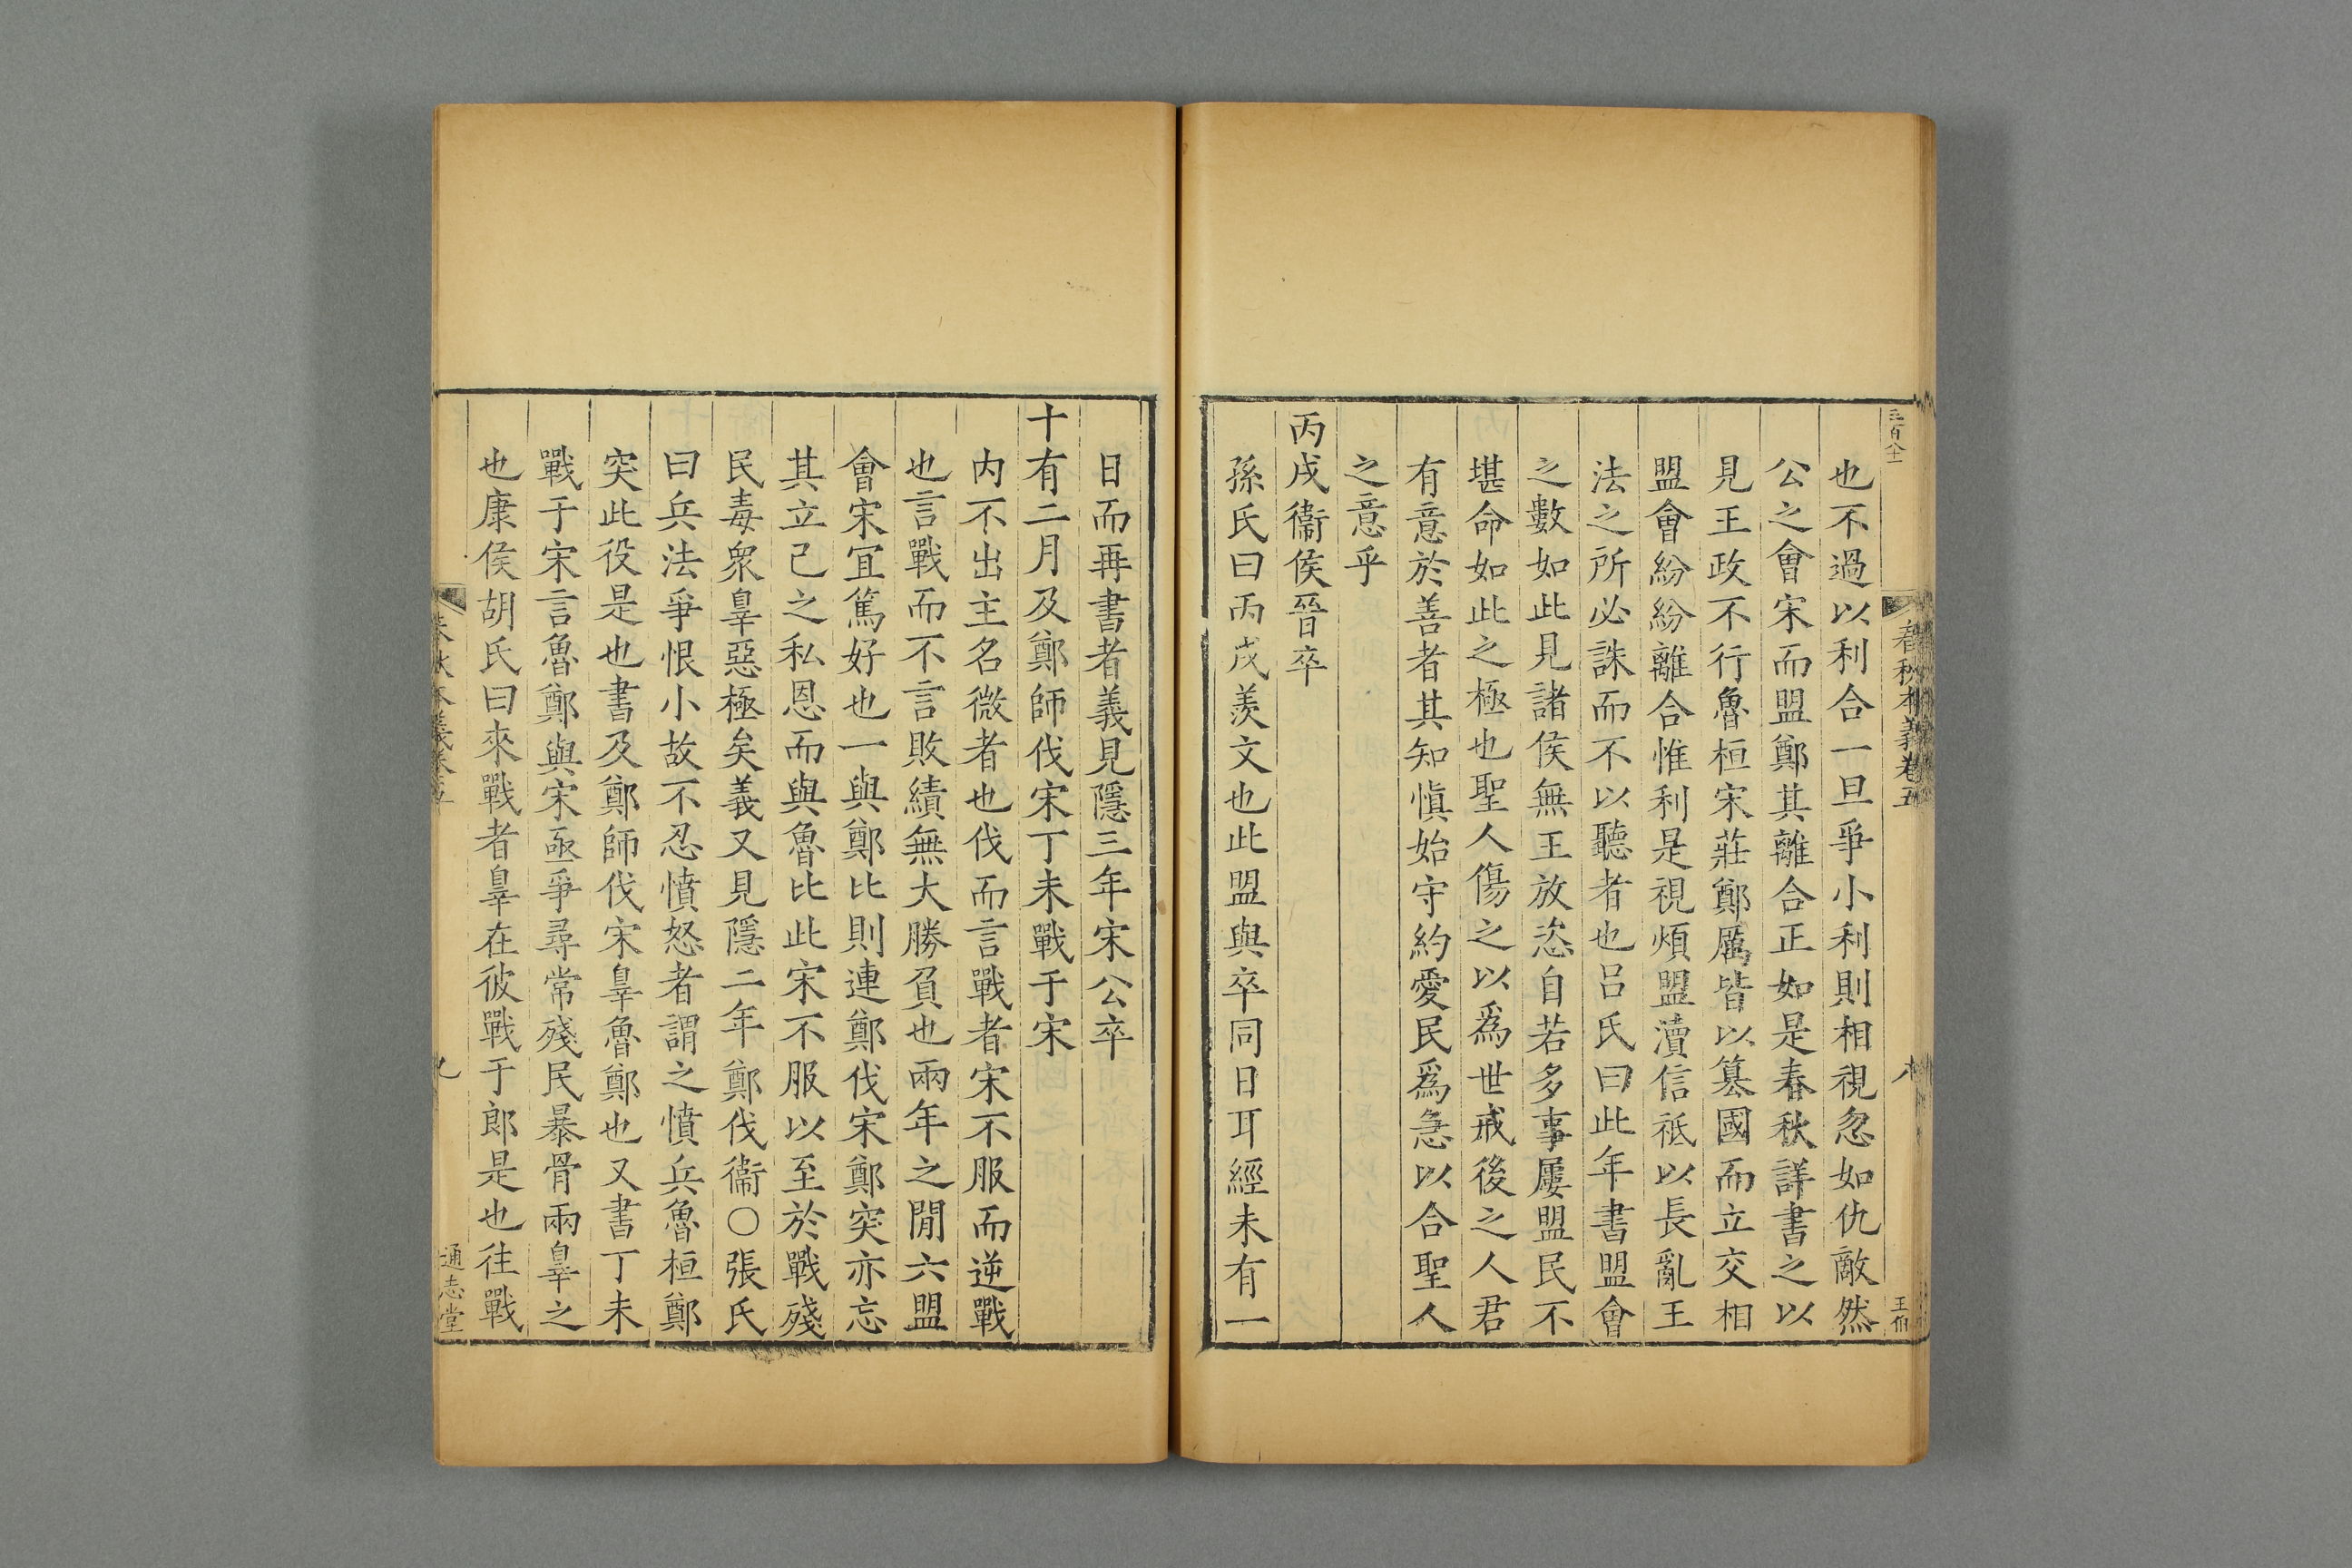 春秋本義卷五
八
王伯
也不過以利合一旦爭小利則相視忽如仇敵然
公之會宋而盟鄭其離合正如是春秋詳書之以
見王政不行魯桓宋莊鄭厲皆以簒國而立交相
盟會紛紛離合惟利是視煩盟瀆信祗以長亂王
法之所必誅而不以聽者也呂氏曰此年書盟會
之數如此見諸侯無王放恣自若多事屢盟民不
堪命如此之極也聖人傷之以爲世戒後之人君
有意於善者其知愼始守約愛民爲急以合聖人
之意乎
丙戌衞侯晉卒
孫氏曰丙戌羨文也此盟與卒同日耳經未有一
日而再書者義見隱三年宋公卒
十有二月及鄭師伐宋丁未戰于宋
内不出主名微者也伐而言戰者宋不服而逆戰
也言戰而不言敗績無大勝負也兩年之閒六盟
會宋宜篤好也一與鄭比則連鄭伐宋鄭突亦忘
其立己之私恩而與魯比此宋不服以至於戰殘
民毒衆辠惡極矣義又見隱二年鄭伐衞○張氏
曰兵法爭恨小故不忍憤怒者謂之憤兵魯桓鄭
突此役是也書及鄭師伐宋辠魯鄭也又書丁未
戰于宋言魯鄭與宋亟爭尋常殘民暴骨兩辠之
也康侯胡氏曰來戰者辠在彼戰于郎是也往戰
春秋本義卷五
九
通志堂